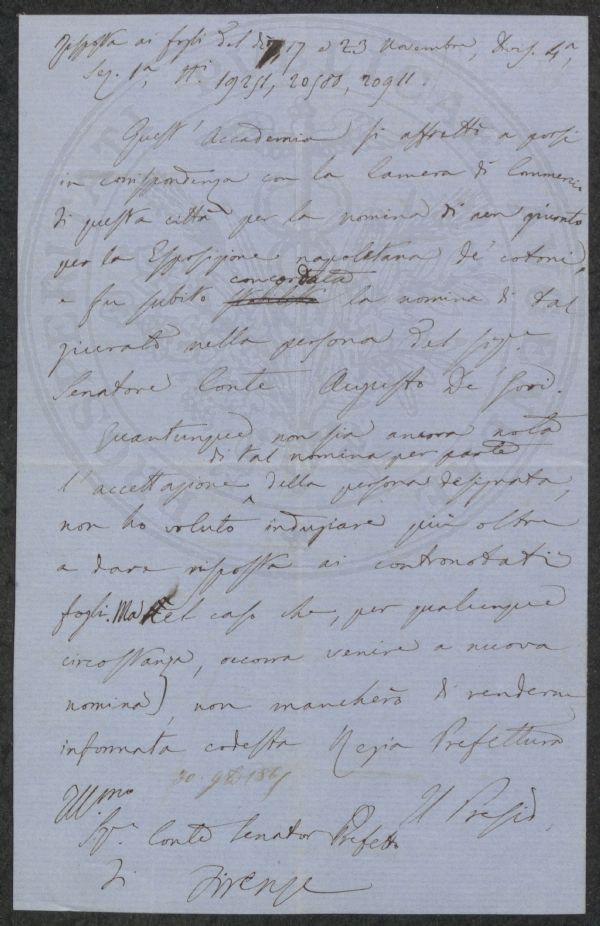 Risposta ai fogli del dì 17 e 23 Novembre, Divis. 4ª,
Sez. 1ª, Nⁱ 19251, 20588, 20911.
Quest' Accademia si affrettò a porsi
in corrispondenza con la Camera di Commercio
di questa città per la nomina di un giurato
per la Esposizione napoletana de' cotoni,
concordata
e fu subito la nomina di tal
giurato nella persona del Sigr
Senatore Conte Augusto De' Gori.
Quantunque non sia ancora nota
di tal nomina per parte
l'accettazione della persona designata,
non ho voluto indugiare più oltre
a dare risposta ai contronotati
fogli. Ma nel caso che, per qualunque
circostanza, occorra venire a nuova
nomina, non mancherò di renderne
informata codesta Regia Prefettura
30. 9bre
Illmo Il Presid.
Sigr Conte Senator Prefetto
di Firenze